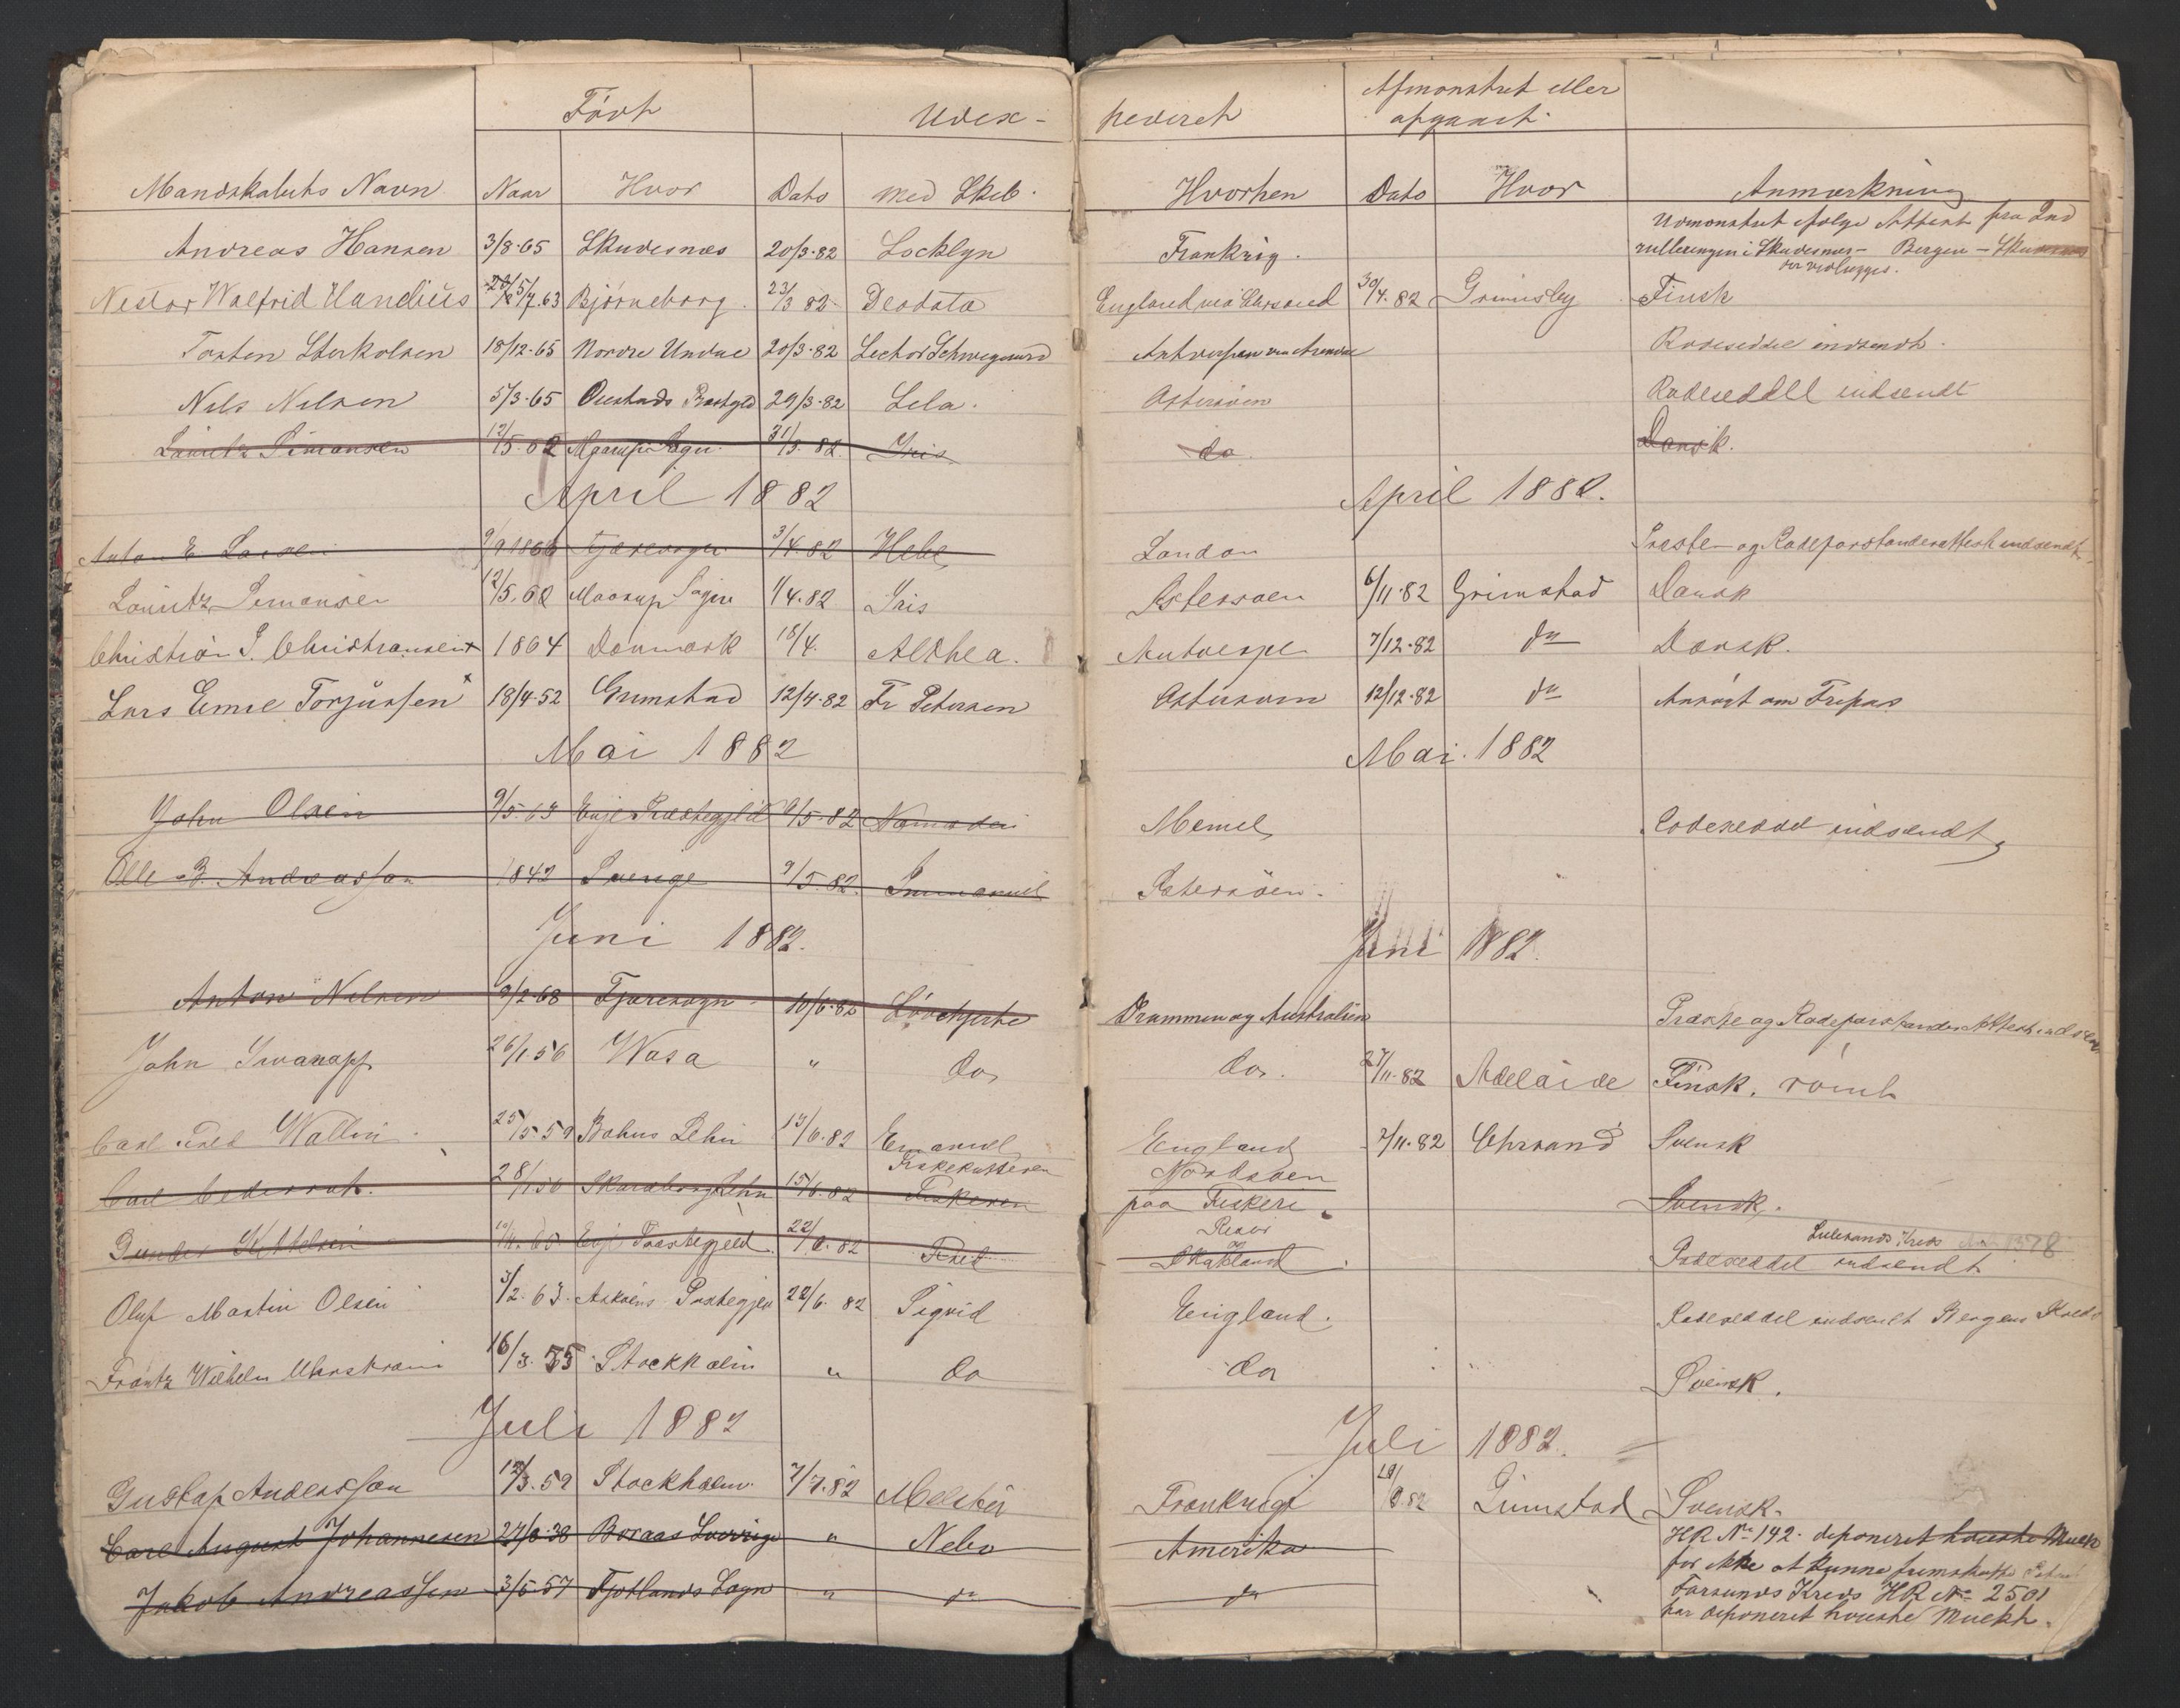 Født Udex- pederet Afmonstret eller
afgaaet
Mandskabets Navn Naar Hvor Dato med Skib Hvorhen Dato Hvor Anmærkning
Udmonstret ifølge Attest fra Ind
Andreas Hansen 3/8-65 Skudesnæs 20/3-82 Locklyn Frankrig rulleringen i Skudesnæs - Bergen -
der vedlægges.
Nestor Walfrid Bjørneborg 23/3 82 Deodata England via 30/4.82 Grimsby Finsk
Torsten Sterkolsen 18/12-65 Nordre Undal 20/3-82 Lector Schwegaard Antverpen via Arendal Rodeseddel indsendt.
Nils Nilsen 5/3-65 Præstgjd 29/3-82 Lela. Østersöen Rodeseddel indsendt
Lauritz Simonsen 12/5.62 Maarup Sogn 31/3.82 Iris do. Dansk.
April 1882 April 1882.
Anton E Larsen 9/9 1866 3/4.82 Hebe London Præste- og Rodeforstanderattest indsendt
Lauritz Simonsen 12/5.62 Maarup Sogn 1/4.82 Iris Østersøen 6/11-82 Grimstad Dansk
Christian P. Christiansen x 1864 Danmark 18/4. Althea. Antverpe 7/12-82 do Dansk.
Lars Emil Torjussen x 18/4-52 Grimstad 12/4-82 Fr Petersen Østersöen 12/12-82 do Ansögt om Fripas
Mai 1882 Mai. 1882
John Olsen 9/5-63 Evje Præstegjeld 9/5-82 Memel Rodeseddel indsendt
Olle B. Andreasson 1842 Sverige 9/5.82. Immanuel Østersöen.
Juni 1882. Juni 1882.
Anton Nilsen 9/2-68 Fjæresogn 10/6-82 Drammen og Australien Præste og Rodeforstander Attest indsendt
John 26/1.56 Wasa " do do. 27/11-82 Adelaide Finsk. römt
Carl Fred Wallin 25/5-59 Bohus Lehn 13/6.82 Emanuel England 7/11-82 Chrsand Svensk
Fiskekutteren Nordsøen
Carl 28/1.56 Skaraborg Lehn 15/6.82 Fiskeren paa Fiskeri Svensk.
Revör
Gunder Kittelsen Evje Præstegjeld 22/6.82 Fred og Lillesands Kreds 1378
Skotland Rodeseddel indsendt
Oluf Martin Olsen 3/2.63. Askøens Præstegjeld 22/6. 82 Sigrid England. Rodeseddel indsendt Bergens Kreds
Frantz Wilhelm 16/3.55 Stockholm " do do Svensk.
Juli 1882 Juli 1882.
Gustaf Andersson 12/3.59 Stockholm 7/7.82 Melchior Frankrige 82 Grimstad Svensk.
Carl August Johannesen 27/8-38 Boraas Sverrige " Nebo Amerika HR No 142. deponeret Muek
for ikke at kunne fremskaffe
Jakob Andreassen 3/5-57 Fjotlands Sogn " do do Farsunds Kreds HR No 2501
har deponeret